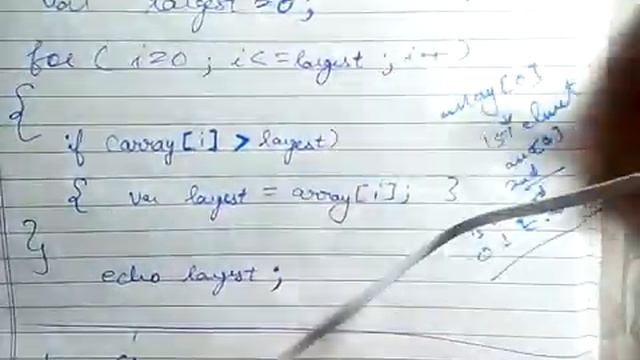 var largest = 0;
for ( i=0 ; i<=largest ; i++ )
{
if (array[i] > largest)
{ var largest = array[i]; }
}
echo largest;
array[0]
1st element